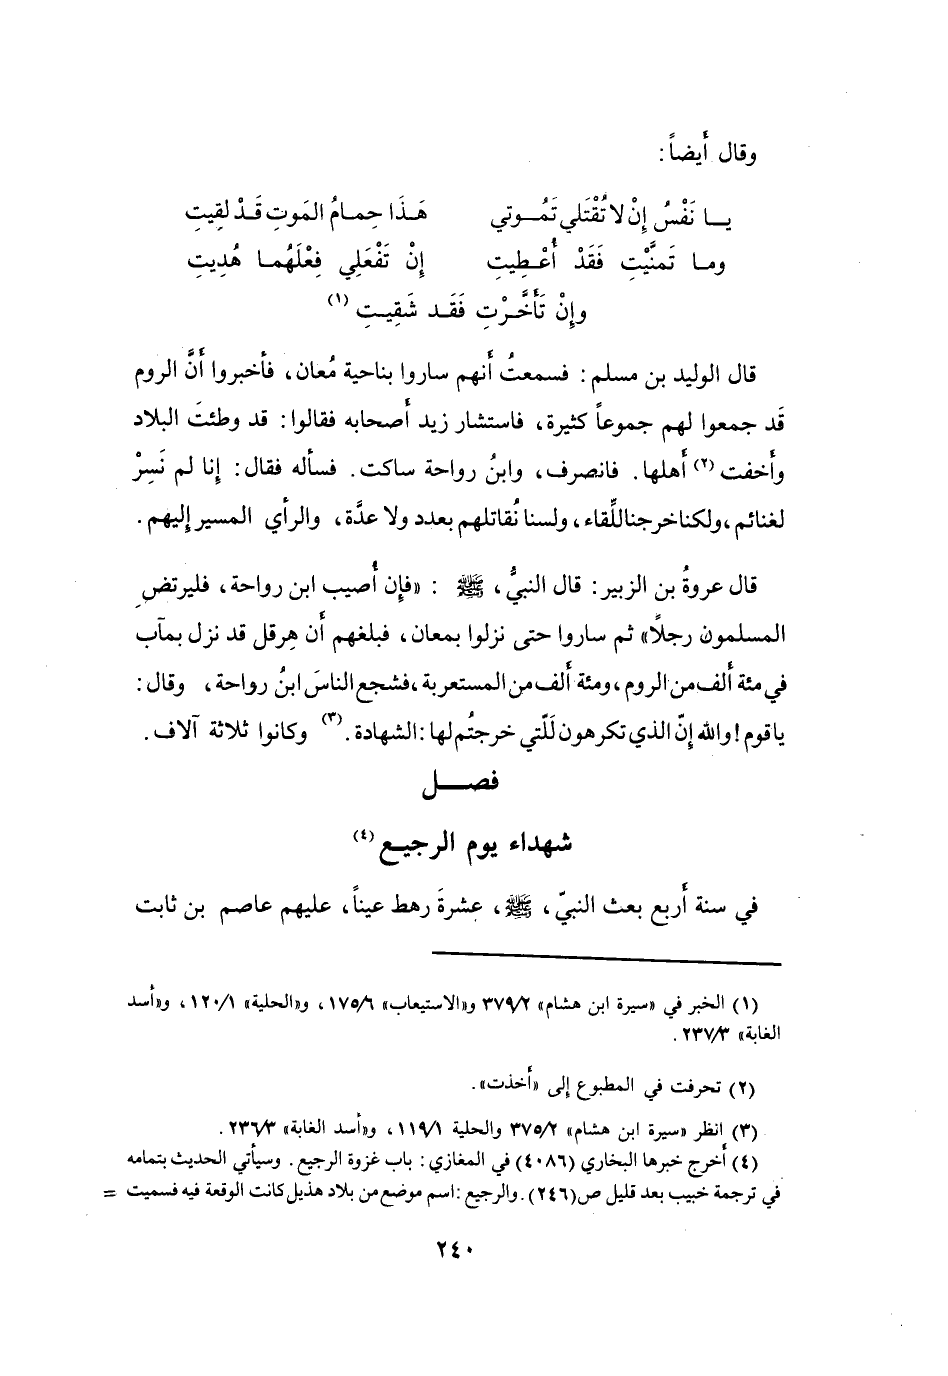 وقال أَيضاً:
يـا نَفْسُ إِنْ لا تُقْتَلي تَمُـوتي هَـذَا حِمـامُ المَوتِ قَـدْ لقِيتِ
ومـا تَمنَّيْتِ فَقَدْ أُعْـطِيتِ إِنْ تَفْعَلِي فِعْلَهُمـا هُدِيتِ
وإِنْ تَأَخَّـرْتِ فَقَـد شَقِيـتِ (١)
قال الوليد بن مسلم: فسمعتُ أَنهم ساروا بناحية مُعان، فأخبروا أَنَّ الروم
قَد جمعوا لهم جموعاً كثيرة، فاستشار زيد أَصحابه فقالوا: قد وطئتَ البلاد
وأَخفت (٢) أَهلها. فانصرف، وابنُ رواحة ساكت. فسأله فقال: إِنا لم نَسِرْ
لغنائم، ولكنا خرجنا للِّقاء، ولسنا نُقاتلهم بعدد ولا عدَّة، والرأي المسير إِليهم.
قال عروةُ بن الزبير: قال النبيُّ، ﷺ : «فإِن أُصيب ابن رواحة، فليرتضِ
المسلمون رجلًا» ثم ساروا حتى نزلوا بمعان، فبلغهم أَن هِرقل قد نزل بمآب
في مئة أَلف من الروم، ومئة أَلف من المستعربة، فشجع الناسَ ابنُ رواحة، وقال:
يا قوم! والله إِنّ الذي تكرهون لَلّتي خرجتُم لها: الشهادة. (٣) وكانوا ثلاثة آلاف.
فصـــل
شهداء يوم الرجيـع (٤)
في سنة أَربع بعث النبيّ، ﷺ، عشرةَ رهط عيناً، عليهم عاصم بن ثابت
(١) الخبر في «سيرة ابن هشام» ٣٧٩/٢ و«الاستيعاب» ١٧٥/٦، و«الحلية» ١٢٠/١، و«أسد
الغابة» ٢٣٧/٣.
(٢) تحرفت في المطبوع إلى «أخذت».
(٣) انظر «سيرة ابن هشام» ٣٧٥/٢ والحلية ١١٩/١، و«أسد الغابة» ٢٣٦/٣.
(٤) أخرج خبرها البخاري (٤٠٨٦) في المغازي: باب غزوة الرجيع. وسيأتي الحديث بتمامه
في ترجمة خبيب بعد قليل ص (٢٤٦). والرجيع: اسم موضع من بلاد هذيل كانت الوقعة فيه فسميت =
٢٤٠